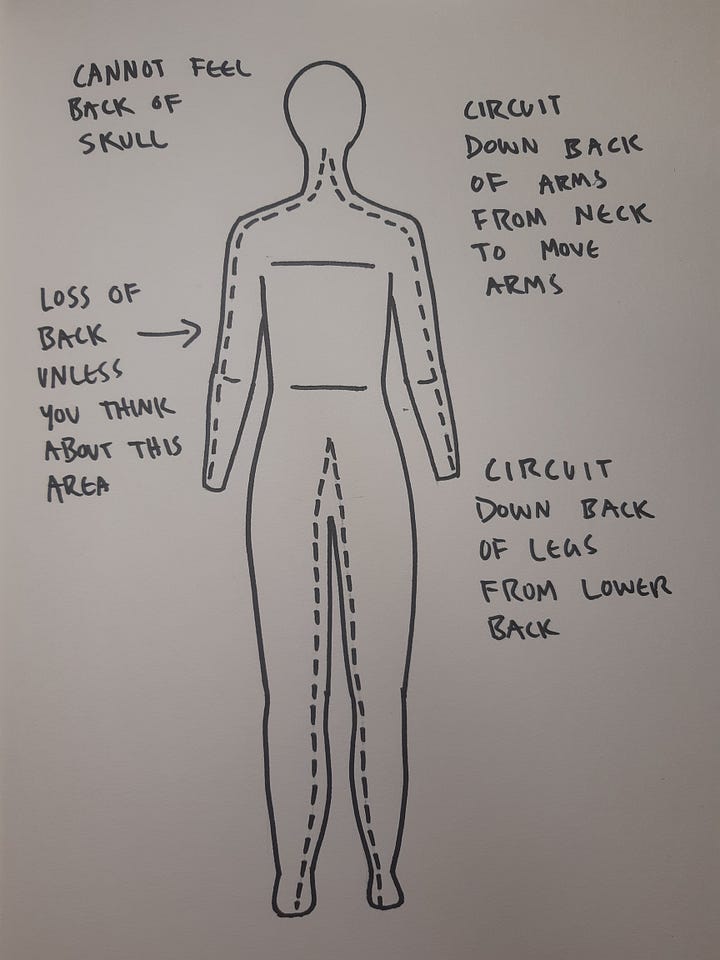 CANNOT FEEL
BACK OF
SKULL
CIRCUIT
DOWN BACK
OF ARMS
FROM NECK
TO MOVE
ARMS
LOSS OF
BACK
UNLESS
YOU THINK
ABOUT THIS
AREA
CIRCUIT
DOWN BACK
OF LEGS
FROM LOWER
BACK